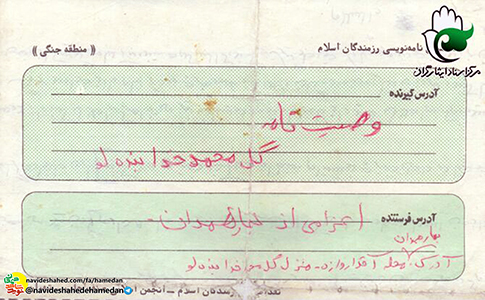 نامه‌نویسی رزمندگان اسلام
(( منطقه جنگی ))
مرکز اسناد ایثارگران
آدرس گیرنده
وصیت نامه
گل محمد خدابنده لو
آدرس فرستنده
اعزامی از بهار همدان
بهار همدان
آدرک محله آقدروازه - منزل گل محمد خدابنده لو
رزمندگان اسلام - انجمن
navideshahed.com/fa/hamedan
@navideshahedehamedan